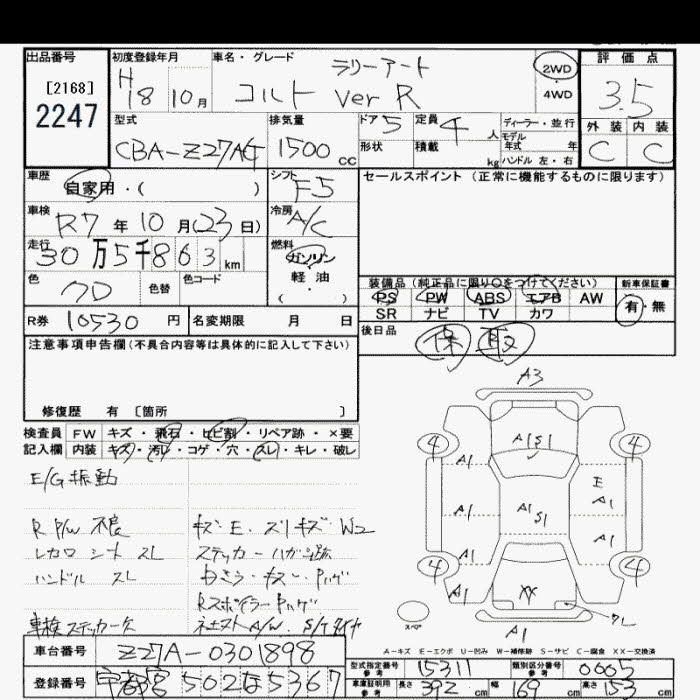 出品番号 初度登録年月 車名・グレード 評価点
[2168] 2247
H18 10月 ラリーアート コルト Ver R 2WD ・ 4WD 3.5
型式 排気量 ドア 5 定員 4人 ディーラー・並行 外装 内装
CBA-Z27AG 1500cc 形状 積載 kg モデル年式 年 ハンドル 左・右 C C
車歴 自家用・( ) シフト F5 セールスポイント (正常に機能するものに限ります)
車検 R7年10月(23日) 冷房 A/C
走行 30万5千863km 燃料 ガソリン 軽油 ( ・ )
色 クロ 色替 色コード
装備品(純正品に限り○をつけてください) 新車保証書
PS PW ABS エアB AW 有・無
SR ナビ TV カワ
R券 10530円 名変期限 月 日
後日品 保 取
注意事項申告欄(不具合内容等は具体的に記入して下さい)
修復歴 有 〔箇所 〕
検査員 FW キズ・飛石・ヒビ割・リペア跡・×要
記入欄 内装 キズ・汚レ・コゲ・穴・スレ・キレ・破レ
E/G 振動
R P/W 不良 キズ E. スリキズ W2
レカロ シート スレ ステッカーハガシ跡
ハンドル スレ
Rスポイラー Pハゲ
車検ステッカー欠
A3
4 A1S1 4
A1 E
A1 A1S1 A1
A1
4 A1 XX A1 4
スペア A1
A-キズ E-エクボ U-凹み W-補修跡 S-サビ C-腐食 XX-交換済
車台番号 Z27A-0301898
型式指定番号 参考 15311 類別区分番号 参考 0005
登録番号 宇都宮 502 5367
車庫証明用 参考 長さ 392cm 幅 169cm 高さ 153cm